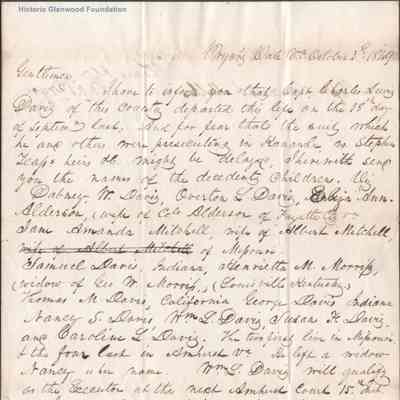 Historic Glenwood Foundation
October 3d, 1849
Gentlemen
I have to inform you that Capt Charles Lewis
Davis of this County departed this life on the 18th day
of Septemr last. And for fear that the suit which
he and others were prosecuting in Kanawha vs Stephen
heirs &c might be delayed, I herewith send
you the names of the decedents children. Viz
Dabney W. Davis, Overton L. Davis, Ann
Alderson, (wife of Alderson of Fayette Cty va
Amanda Mitchell, wife of Albert Mitchell,
wife of Albert Mitchell of Missouri
Samuel Davis, Indiana, Henrietta M. Morris,
(widow of Geo W. Morris,) (Louisville Kentucky)
Thomas M. Davis, California George Davis Indiana
Nancy S. Davis Wm L. Davis, Susan H. Davis,
and Caroline L Davis. The two first live in Missouri
& the four last in Amherst Va. He left a widow
Nancy by name. Wm L. Davis will qualify
as the Executor at the next Amherst Court 15th